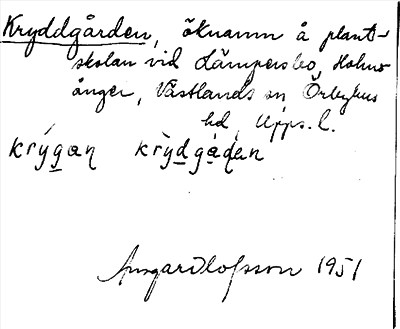 Kryddgården, öknamn å plant-
skolan vid Lämpersbo, Holms-
ånger, Västlands sn, Örbyhus
hd, Upps. l.
krýgan krỳdgáḍen
Amgard Olofsson 1951